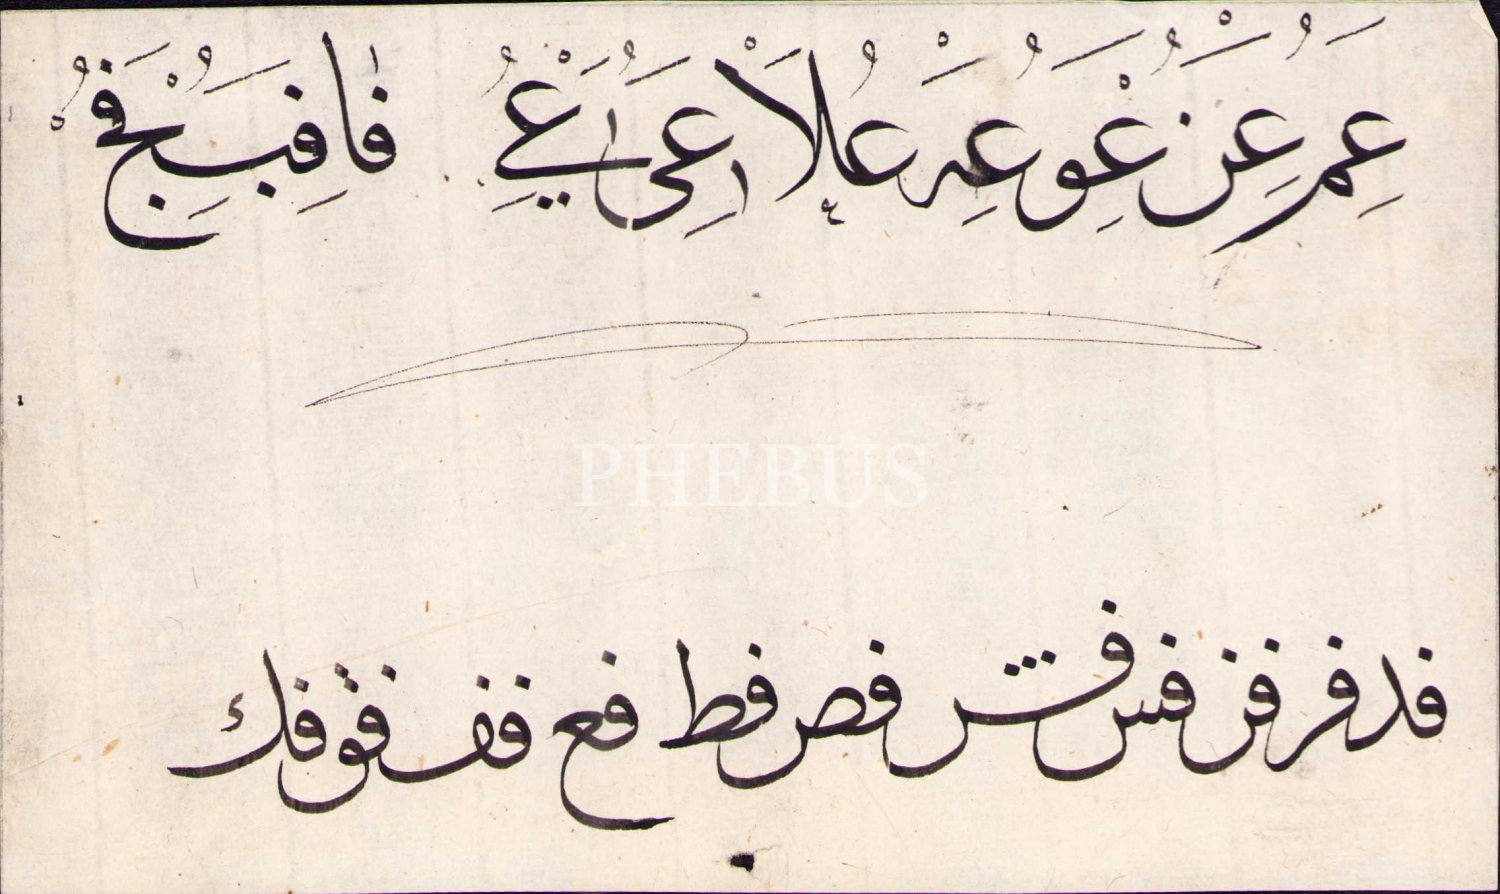 عم عن عو عه علا عى عے فا فب فج
PHEBUS
فد فر فن فس فش فص فط فع فف فق فك